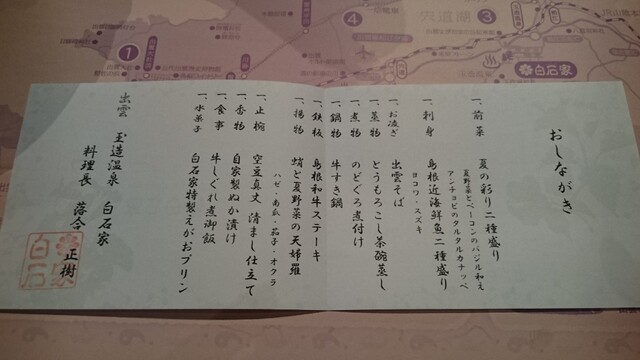 おしながき
一、前菜 夏の彩り二種盛り
夏野菜とベーコンのバジル和え
アンチョビのタルタルカナッペ
一、刺身 島根近海鮮魚二種盛り
ヨコワ・スズキ
一、お凌ぎ 出雲そば
一、蒸物 とうもろこし茶碗蒸し
一、煮物 のどぐろ煮付け
一、鍋物 牛すき鍋
一、鉄板 島根和牛ステーキ
一、揚物 蛸と夏野菜の天婦羅
ハゼ・南瓜・茄子・オクラ
一、止椀 空豆真丈 清まし仕立て
一、香物 自家製ぬか漬け
一、食事 牛しぐれ煮御飯
一、水菓子 白石家特製えがおプリン
出雲 玉造温泉 白石家
料理長 落合 正樹
白石家
宍道湖
③
④
①
白石家